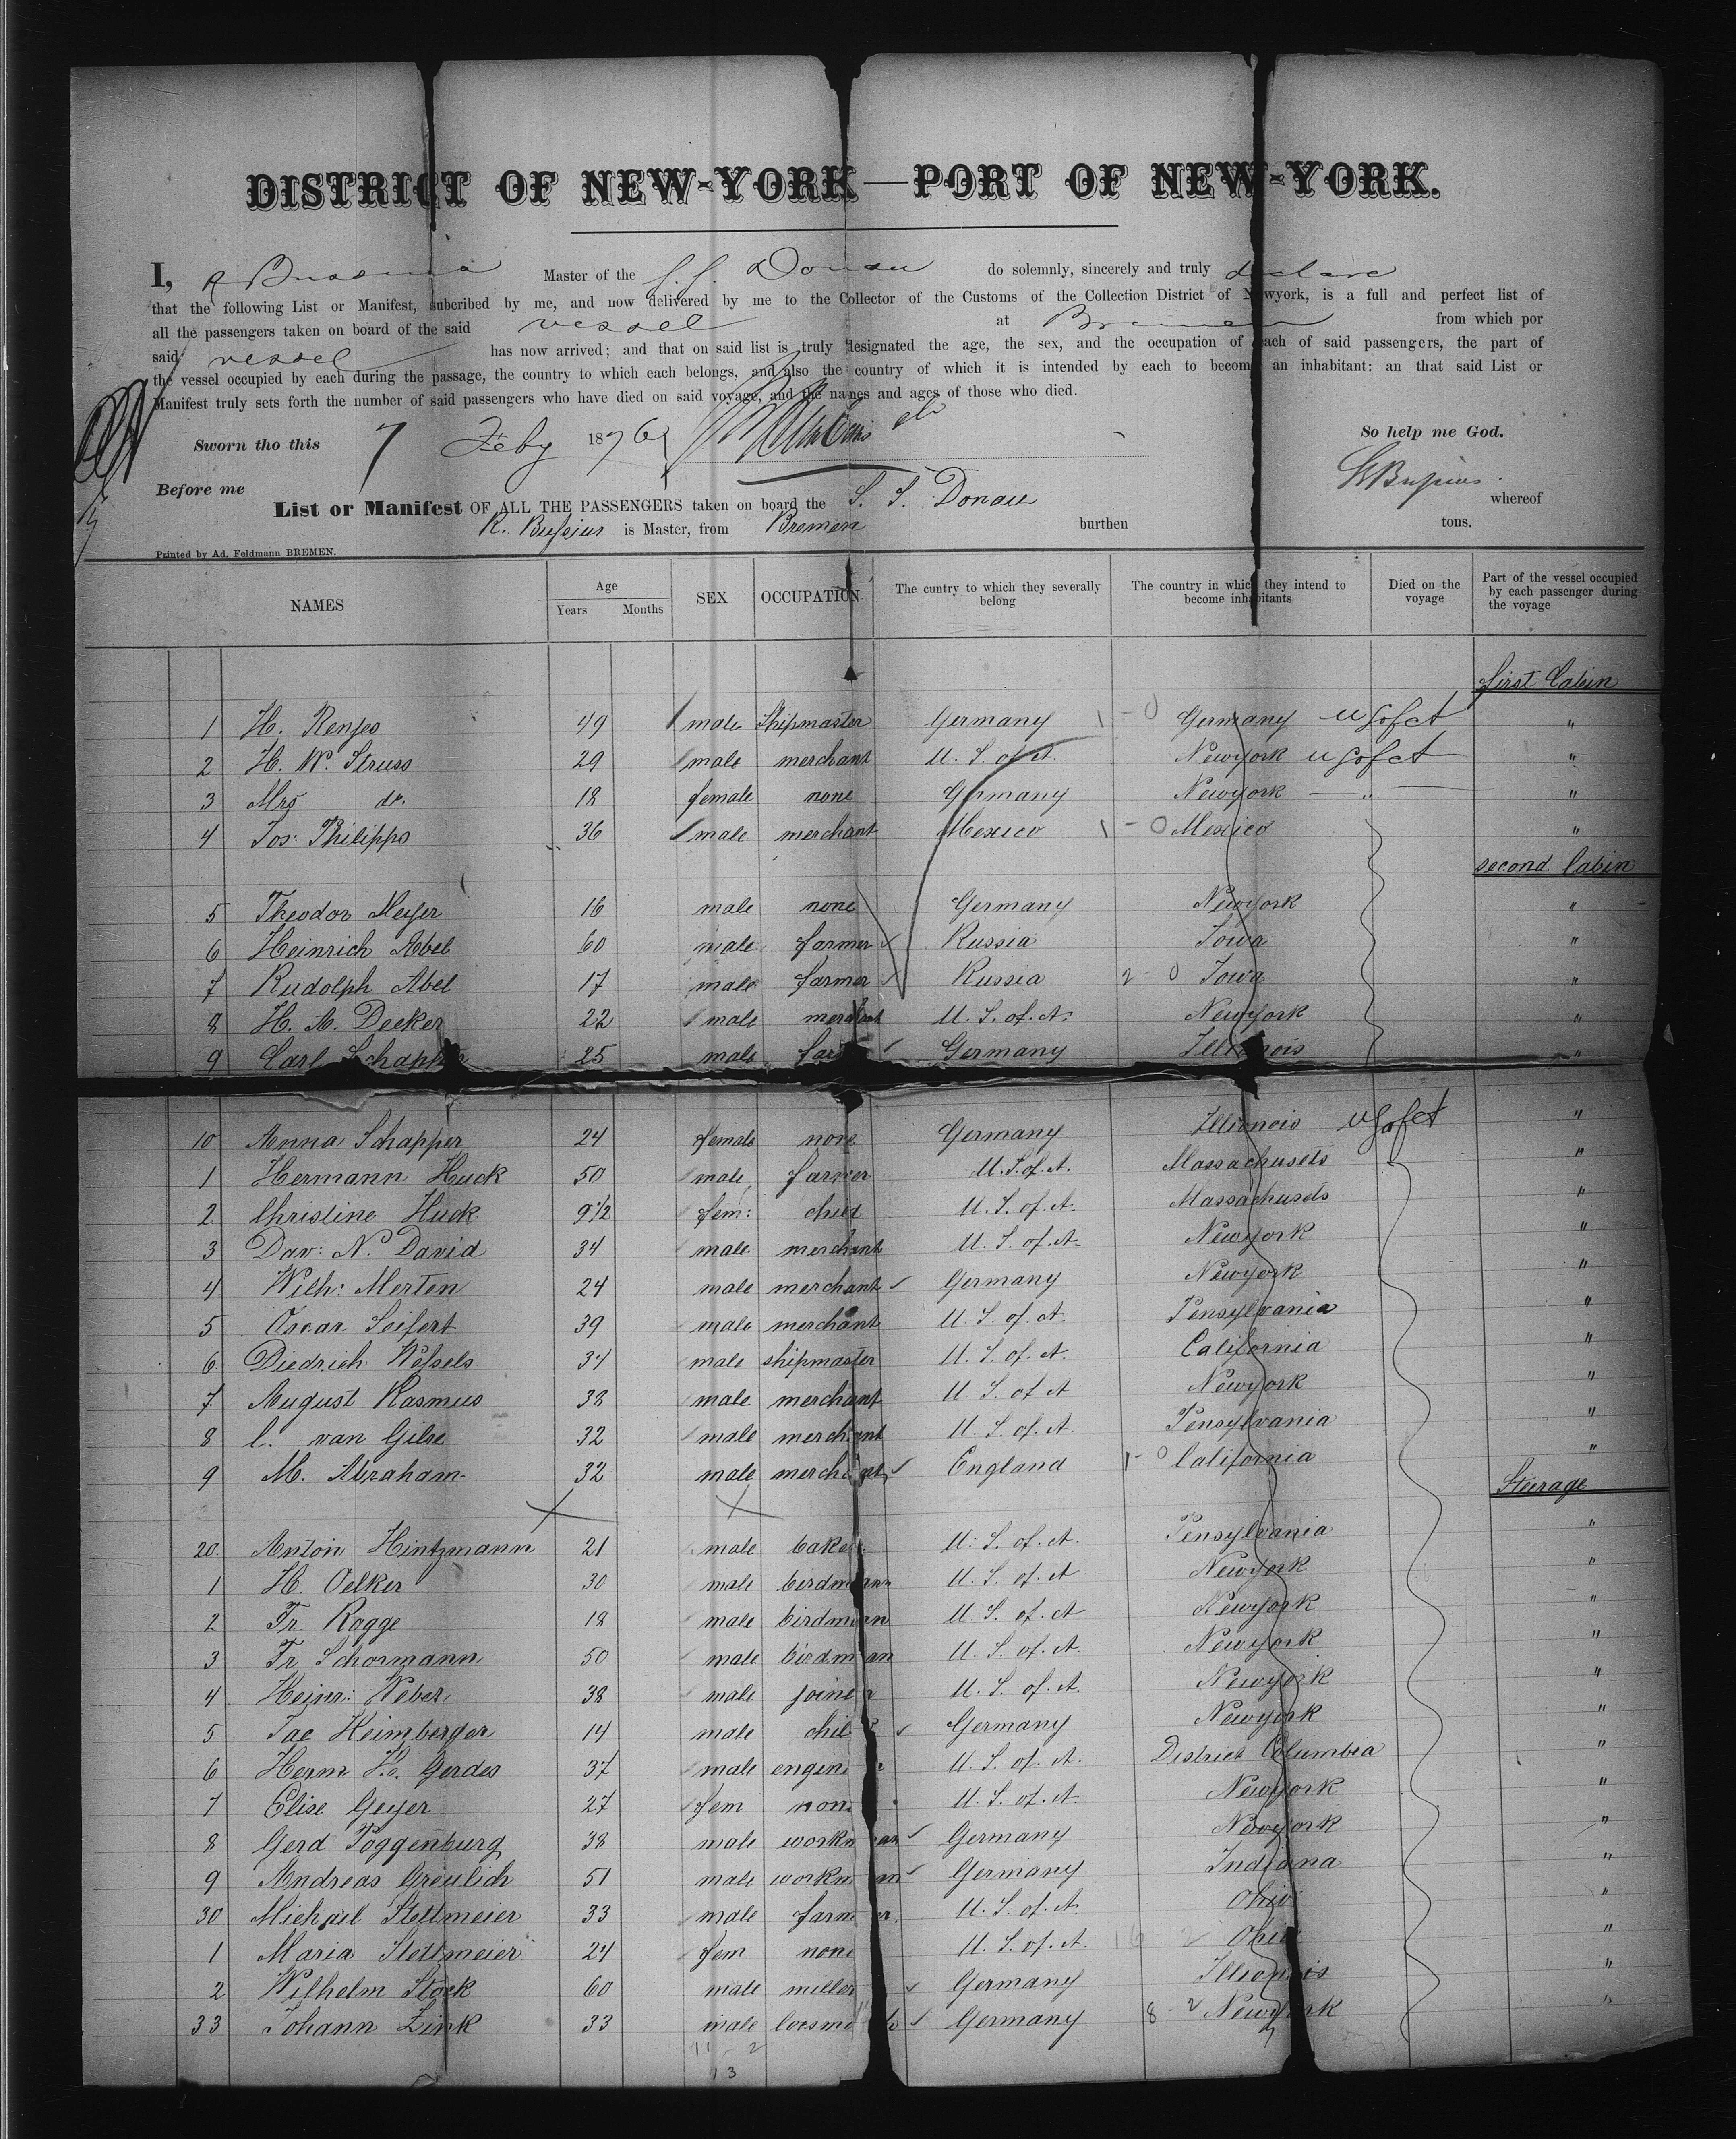 DISTRICT OF NEW-YORK—PORT OF NEW-YORK.
I, R Bussius Master of the S.S. Donau do solemnly, sincerely and truly declare
that the following List or Manifest, subcribed by me, and now delivered by me to the Collector of the Customs of the Collection District of Newyork, is a full and perfect list of
all the passengers taken on board of the said vessel at Bremen from which por
said vessel has now arrived; and that on said list is truly designated the age, the sex, and the occupation of each of said passengers, the part of
the vessel occupied by each during the passage, the country to which each belongs, and also the country of which it is intended by each to become an inhabitant: an that said List or
Manifest truly sets forth the number of said passengers who have died on said voyage, and the names and ages of those who died.
Sworn tho this 7 Feby 1876 So help me God.
Before me RBussius
List or Manifest OF ALL THE PASSENGERS taken on board the S. S. Donau whereof
R. Bussius is Master, from Bremen burthen tons.
Printed by Ad. Feldmann BREMEN.
NAMES Age Years Months SEX OCCUPATION The cuntry to which they severally belong The country in which they intend to become inhabitants Died on the voyage Part of the vessel occupied by each passenger during the voyage
first Cabin
1 H. Renjes 49 male Shipmaster Germany 1 - 0 Germany "
2 H. W. Struss 29 male merchant U. S. of A. Newyork "
3 Mrs do. 18 female none Germany Newyork " "
4 Jos: Philipps 36 male merchant Mexico 1 - 0 Mexico "
second Cabin
5 Theodor Meyer 16 male none Germany Newyork "
6 Heinrich Abel 60 male farmer Russia Iowa "
7 Rudolph Abel 17 male farmer Russia 2 - 0 Iowa "
8 H. A. Decker 22 male merchant U. S. of. A. Newyork "
9 Carl Schapper 25 male far Germany Illionois "
10 Anna Schapper 24 female none Germany Illionois "
1 Hermann Huck 50 male farmer U. S. of. A. Massachusets "
2 Christine Huck 9 1/2 fem: child U. S. of. A. Massachusets "
3 Dav: N. David 34 male merchant U. S. of. A. Newyork "
4 Wilh: Merten 24 male merchant Germany Newyork "
5 Oscar Seifert 39 male merchant U. S. of. A. Pensylvania "
6 Diedrich Wessels 34 male shipmaster U. S. of. A. California "
7 August Rasmus 38 male merchant U. S. of A Newyork "
8 C. van Gilse 32 male merchant U. S. of. A. Pensylvania "
9 M. Abraham 32 male merchant England 1 - 0 California "
Steerage
20 Anton Hintzmann 21 male baker U. S. of. A. Pensylvania "
1 H. Oelker 30 male birdmann U. S. of. A Newyork "
2 Fr. Rogge 18 male birdmann U. S. of. A Newyork "
3 Fr. Schormann 50 male birdman U. S. of. A. Newyork "
4 Heinr: Weber 38 male joiner U. S. of. A. Newyork "
5 Jac Heimberger 14 male chil Germany Newyork "
6 Herm Gerdes 37 male engin U. S. of. A. District Columbia "
7 Elise Geyer 27 fem none U. S. of. A. Newyork "
8 Gerd Poggenburg 38 male workman Germany Newyork "
9 Andreas Greulich 51 male workman Germany Indiana "
30 Michael Stettmeier 33 male farmer U. S. of. A. Ohio "
1 Maria Stettmeier 24 fem none U. S. of. A. 16 2 Ohio "
2 Wilhelm Stock 60 male miller Germany Illionois "
33 Johann Zink 33 male Germany 8 - 2 Newyork "
11 - 2
13